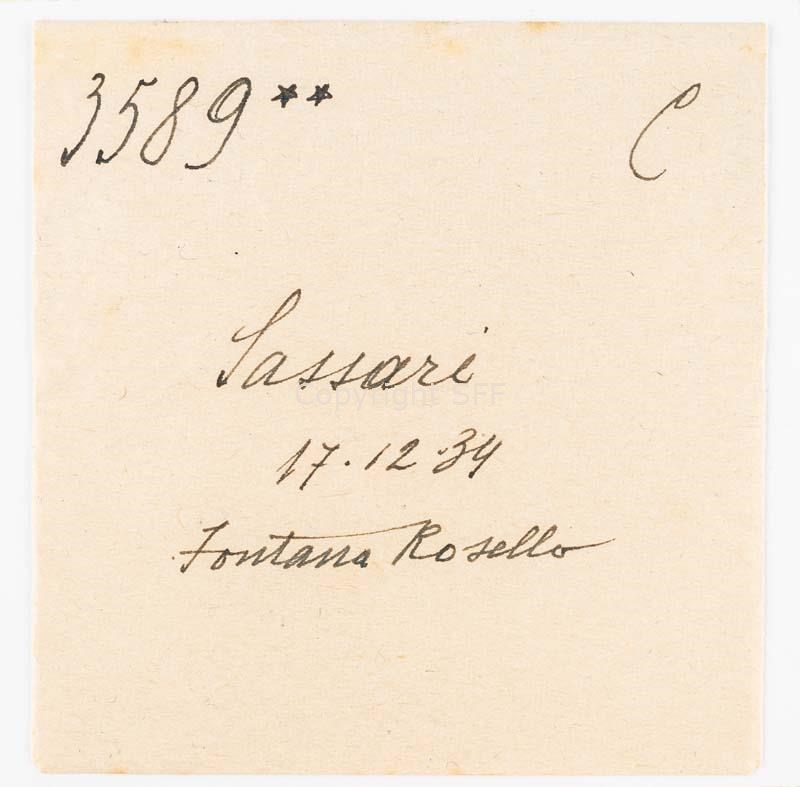 3589** C
Sassari
Copyright SFF
17.12.34
Fontana Rosello